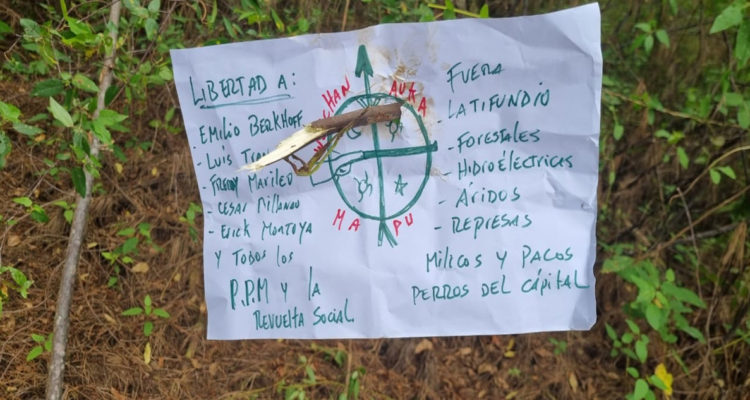 LIBERTAD A:
EMILIO BERKHOFF
- LUIS
- FREDDY MARILEO
- CESAR MILLANAO
- ERICK MONTOYA
Y TODOS LOS
P.P.M Y LA
REVUELTA SOCIAL
AUKA
MAPU
FUERA
- LATIFUNDIO
- FORESTALES
- HIDROELÉCTRICAS
- ÁRIDOS
- REPRESAS
MILICOS Y PACOS
PERROS DEL CÁPITAL